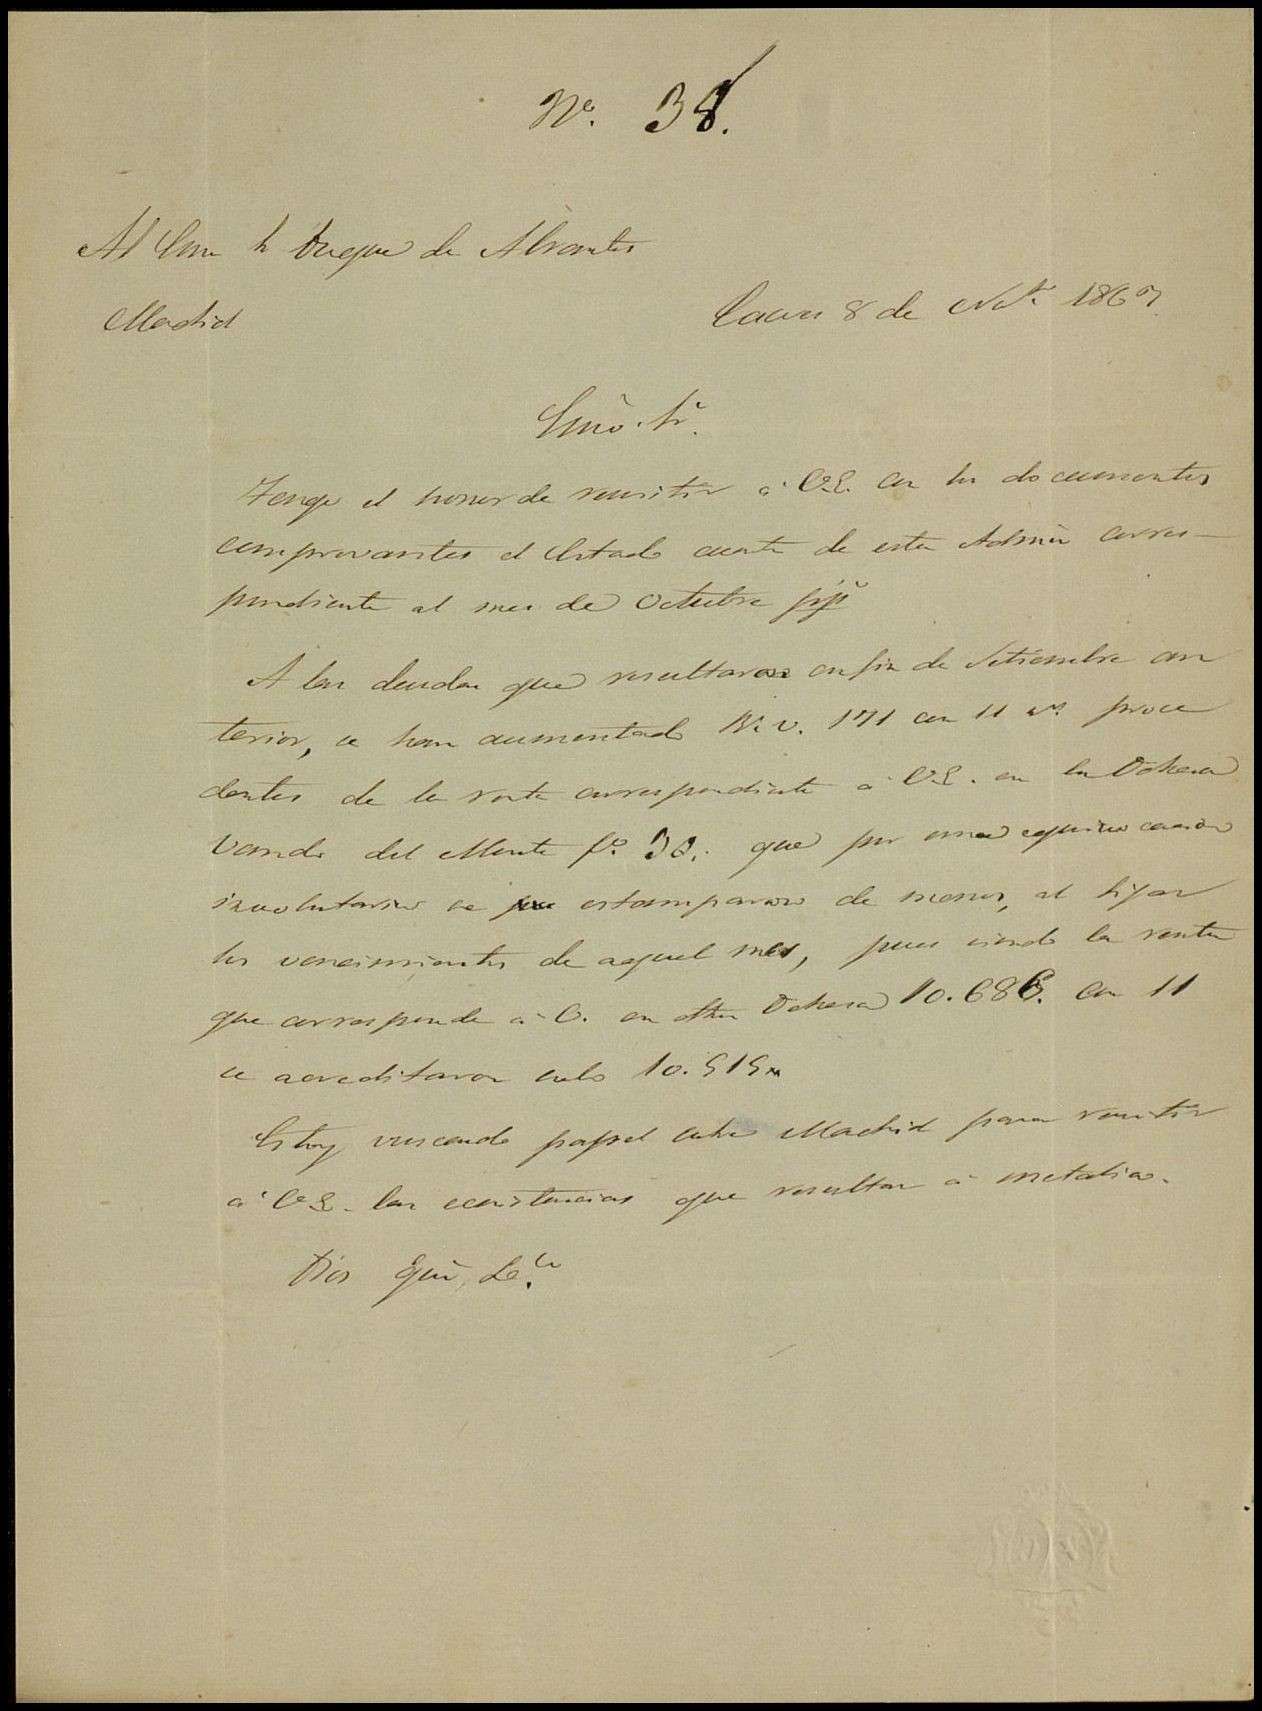 Nº. 38.
Al Exmo Sr Duque de Abrantes
Madrid
Caceres 8 de Nobre. 1867.
Exmo. Sr.
Tengo el honor de remitir á V.E. con los documentos
comprovantes el Estado cuenta de esta Admon corres-
pondiente al mes de Octubre ppº
A las deudas que resultaron en fin de Setiembre an
terior, se han aumentado Rs. v. 171 con 11 proce
dentes de la renta correspondiente á V.E. en la Dehesa
Vando del Monte fº. 30. que por una equivocacion
involuntaria se estamparon de menos, al fijar
los vencimientos de aquel mes, pues siendo la renta
que corresponde á V. en otra Dehesa 10.686. con 11
se acreditaron solo 10.515
Estoy vuscando papel sobre Madrid para remitir
á V.E. las ecsistencias que resultan á metalico.
Dios gue, &.